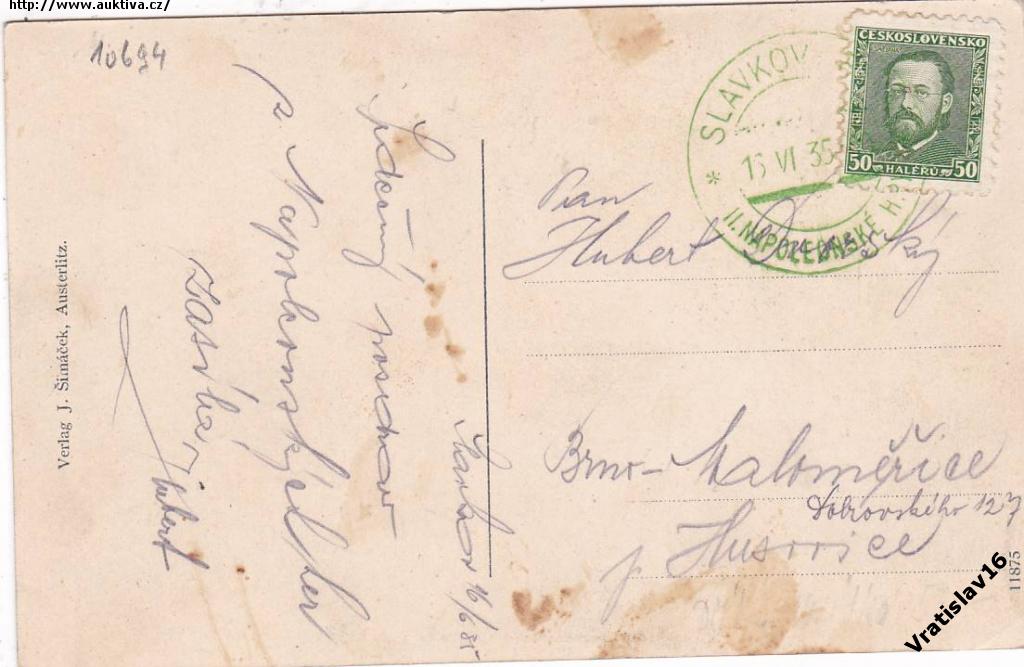 http://www.auktiva.cz/
10694
Srdečný pozdrav
z Napoleonských her
zasílá
Hubert
Slavkov 16/6 35
Verlag J. Šimáček, Austerlitz.
ČESKOSLOVENSKO
50 HALÉŘŮ 50
* SLAVKOV
16 VI 35
II. NAPOLEONSKÉ H.
Pan
Hubert
Brno-Maloměřice
Dobrovského 127
p. Husovice
11875
Vratislav16